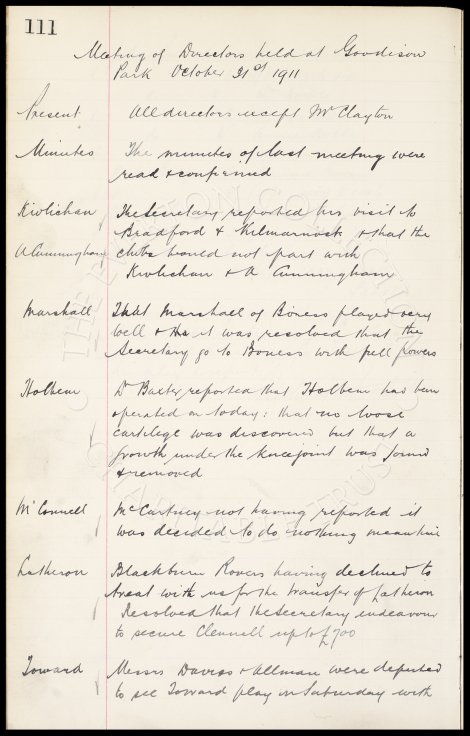 111
Meeting of Directors held at Goodison
Park October 31st 1911
Present All directors except Mr Clayton
Minutes The minutes of last meeting were
read & confirmed
Kivlichan The Secretary reported his visit to
Bradford & Kilmarnock & that the
A Cunningham clubs would not part with
Kivlichan & A Cunningham
Marshall That Marshall of Boness played very
well & it was resolved that the
Secretary go to Boness with full powers
Holbem Dr Baxter reported that Holbem had been
operated on today: that no loose
cartilege was discovered but that a
growth under the knee joint was found
& removed
McConnell McCartney not having reported it
was decided to do nothing meantime
Latheron Blackburn Rovers having declined to
treat with us for the transfer of Latheron
Resolved that the Secretary endeavour
to secure Clennell up to £700
Toward Messrs Davies & Allman were deputed
to see Toward play on Saturday with